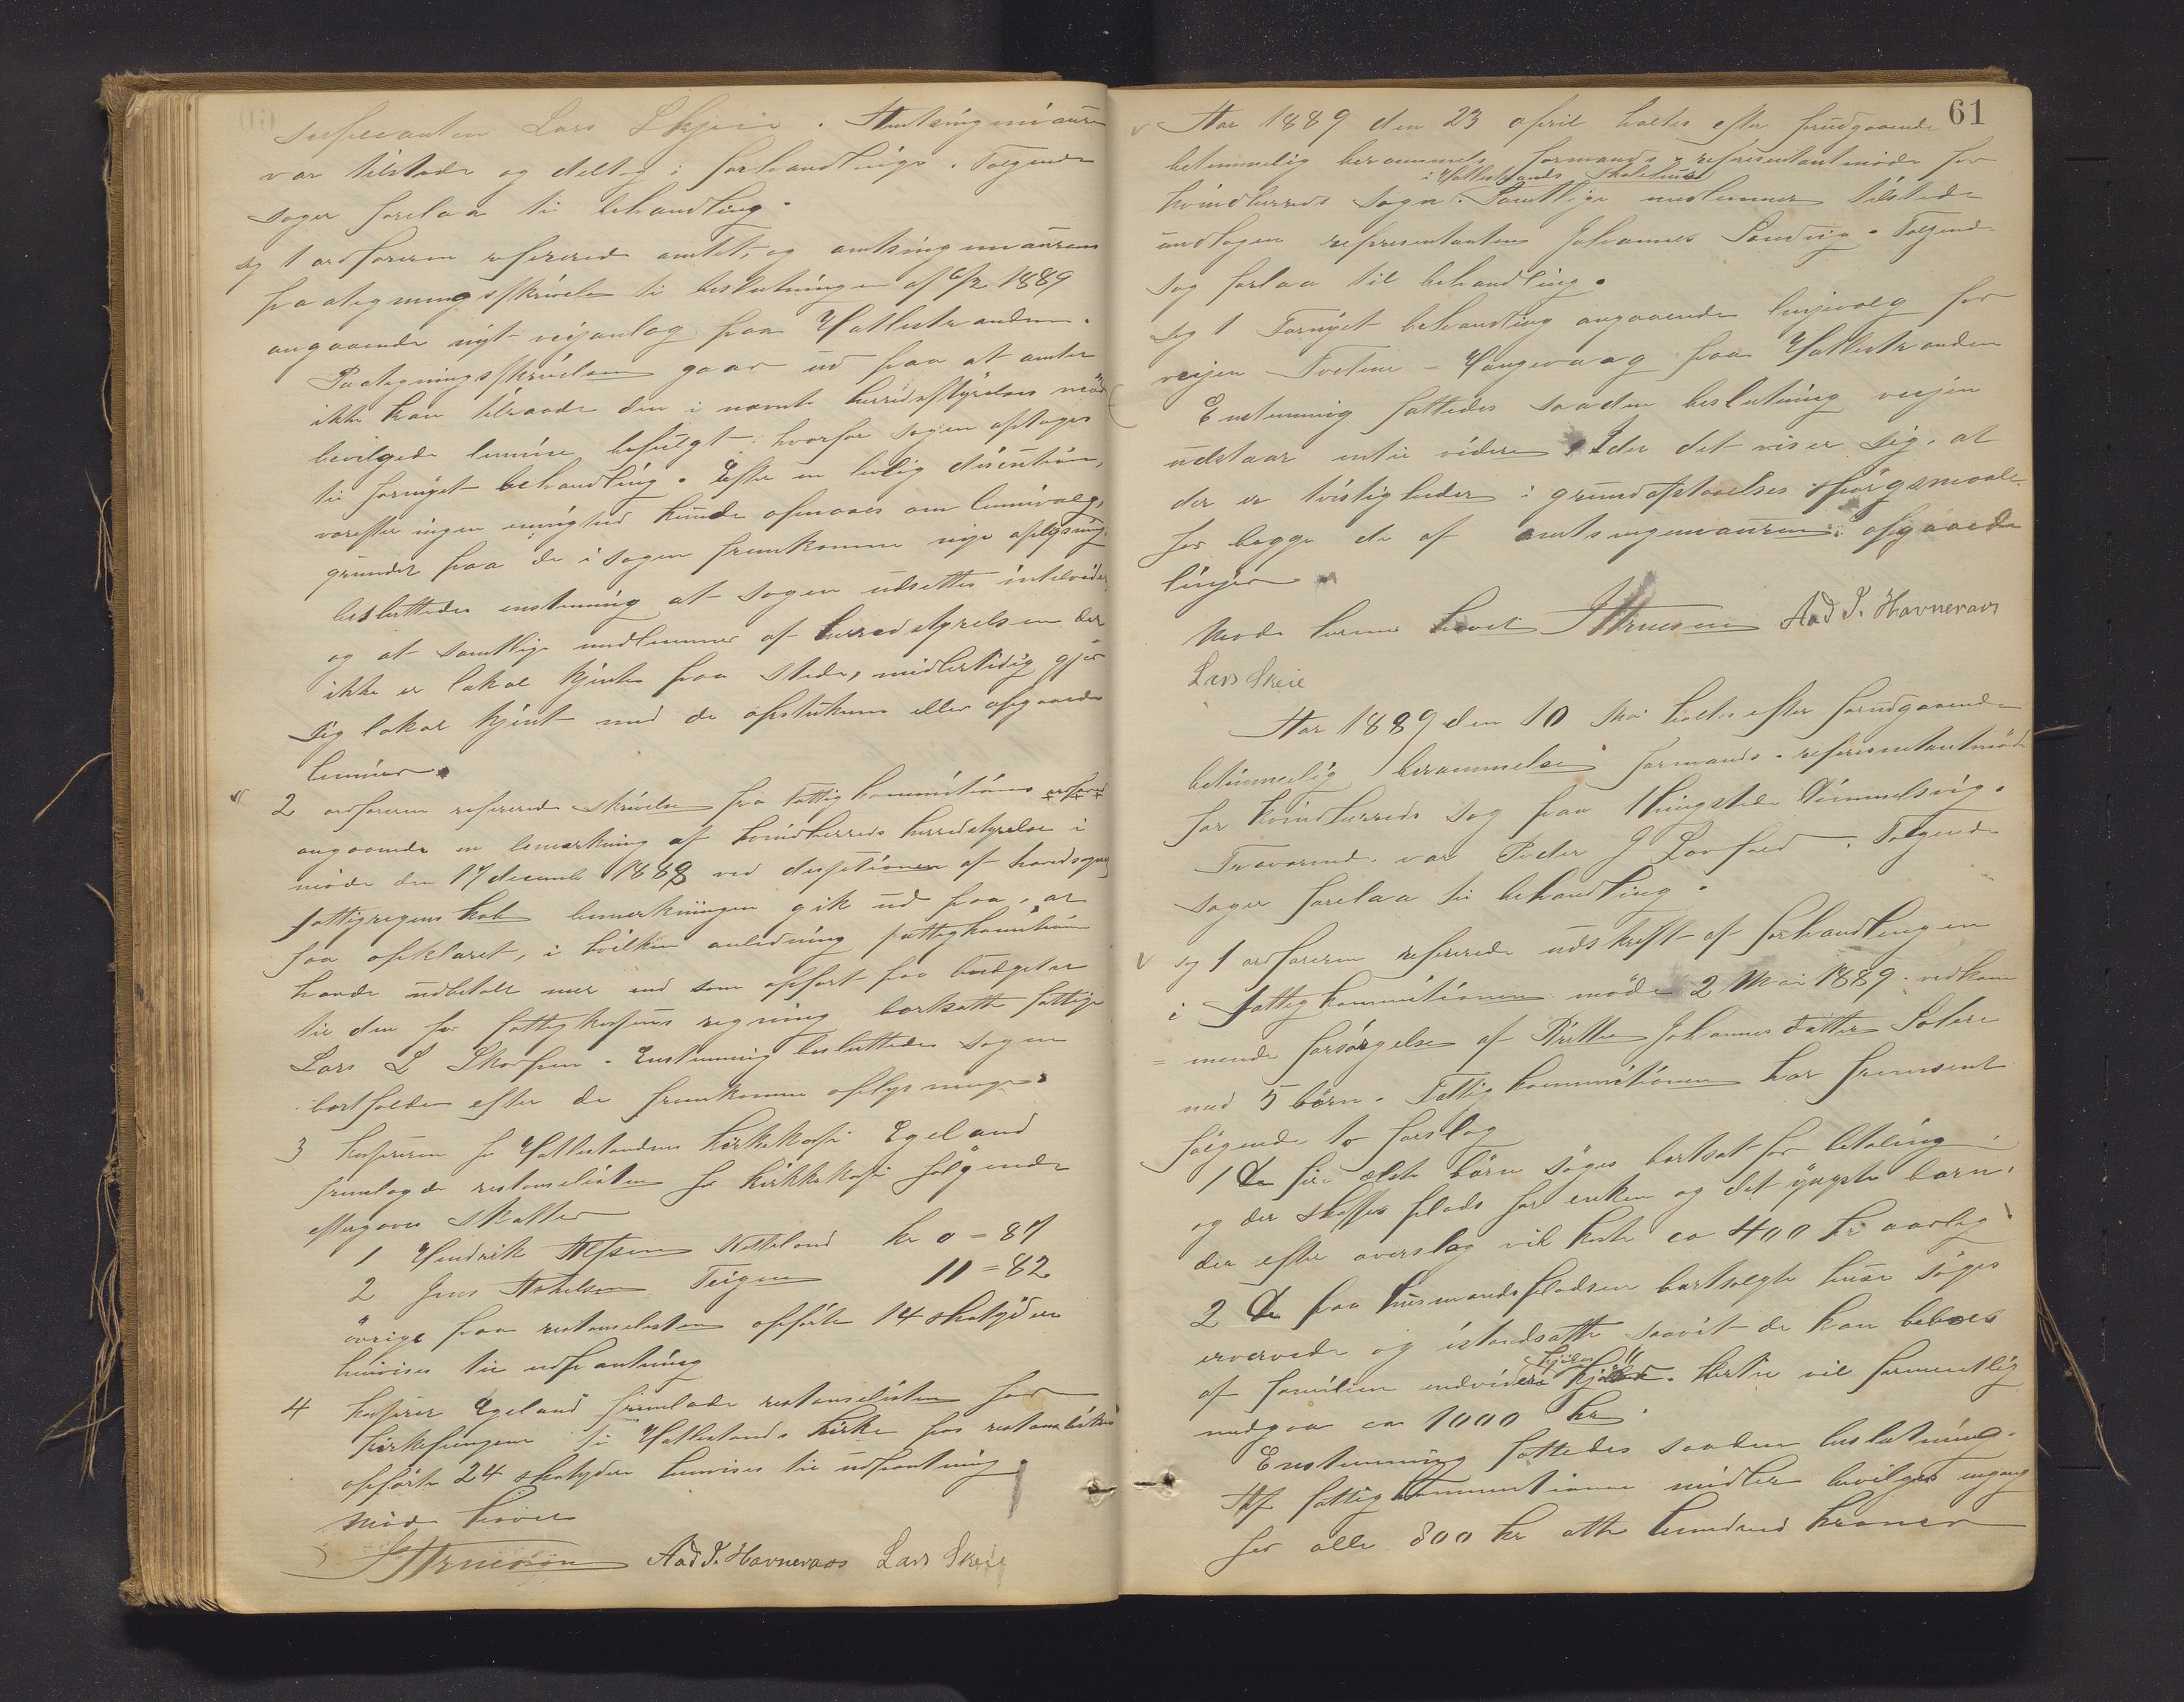 Lars Skjeie. Amtsingeniøren
var tilstede og deltog i forhandlinge. Følgende
sager forelaa til behandling.
sag 1 ordføreren refererede amtets og amtsingeniørens
paategningsskrivelse til beslutningen af 6/2 1889
angaaende nyt veyanlæg paa Hatlestranden.
Paategningsskrivelsen gaar ud paa at amtet
ikke kan tilraade den i nævnte herredsstyrelses møde
bevilgede linnie befulgt hvorfor sagen optoges
til fornyet behandling. Efter en livlig discution,
vorefter ingen enighed kunde opnaaes om linnivalg,
grundet paa de i sagen fremkomne nye oplysninger
besluttedes enstemmig at sagen udsættes intilvidere
og at samtlige medlemmer af herredstyrelsen der
ikke er lokal kjente paa stede, midlertidig gjør
sig lokal kjent med de opstukne eller opgaaede
linnier.
2 ordføreren refererede skrivelse fra fattigkommitionens ordfører
angaaende en bemærkning af Kvindherreds herredstyrelse i
møde den 17 decemb 1888 ved desitionen af hovedsognets
fattigregenskab bemerkningen gik ud paa, at
faa opklaret, i hvilken anledning fattigkommitionen
havde udbetalt mer end som opført paa budgetet
til den for fattigkassens regning bortsatte fattige
Lars L Skorpen. Enstemmig besluttedes sagen
bortfalde efter de fremkomne oplysninger.
3 kasereren for Hatlestrandens kirkekasse Egeland
fremlagde restanselisten for kirkekasse følgende
eftergaves skatter
1 Hendrik Netteland kr 0=87
2 Jens Teigen 11=82
øvrige paa restanselisten opførte 14 skatydere
henvises til udpantning
4 kaserer Egeland fremlade restanselisten for
kirkepengene til Hatlestrands kirke paa restanselisten
opførte 24 skatydere henvises til udpantning.
Møde hævet
Aad T. Havneraas Lars Skeie
61
Aar 1889 den 23 april holtes efter forudgaaende
betimmelig berammelse formands-representantmøde for
i Hatlestrands skolehuse
Kvindherreds sogn. Samtlige medlemmer tilstede
undtagen representanten Johannes Sandvig. Følgende
sag forlaa til behandling.
sag 1 Fornyet behandling angaaende linjevalg for
vejen Tveten - Vangevaag paa Hatlestranden
Enstemmig fattedes saaden beslutning vejen
udstaar intil videre. Ider det viser sig, at
der er tvistigheder i grundafstaaelses spørgsmaale.
for begge de af amtsingeniøren opgaaede
linjer
Møde herme hævet Aad T. Havneraas
Lars Skeie
Aar 1889 den 10 Mai holtes efter forudgaaende
betimmelig berammelse formands-representantmøde
for Kvindherreds sog paa thingstede Dimmelsvig.
Fraværende var Peder J Lovfald. Følgende
sager forelaa til behandling.
sag 1 ordføreren refererede udskrift af forhandlingen
i fattigkommitionen møde 2 Mai 1889 vedkom
=mende forsørgelse af Britte Johannesdatter
med 5 børn. Fattigkommitionen har fremsent
følgende to forslag
1 De fire ældste børn søges bortsat for betaling
og der skaffes plads for enken og det yngste barn.
der efter overslag vil koste ca 400 kr aarlig
2 De paa husmandspladsen bortsolgte huse søges
ervervede og istandsatte saavit de kan beboes
kjøbes
af familien endvidere. Dette vil formentlig
medgaa ca 1000 kr.
Enstemmig fattedes saaden beslutning.
Af fattigkommitionens midler bevilges engang
for alle 800 kr otte hundred kroner